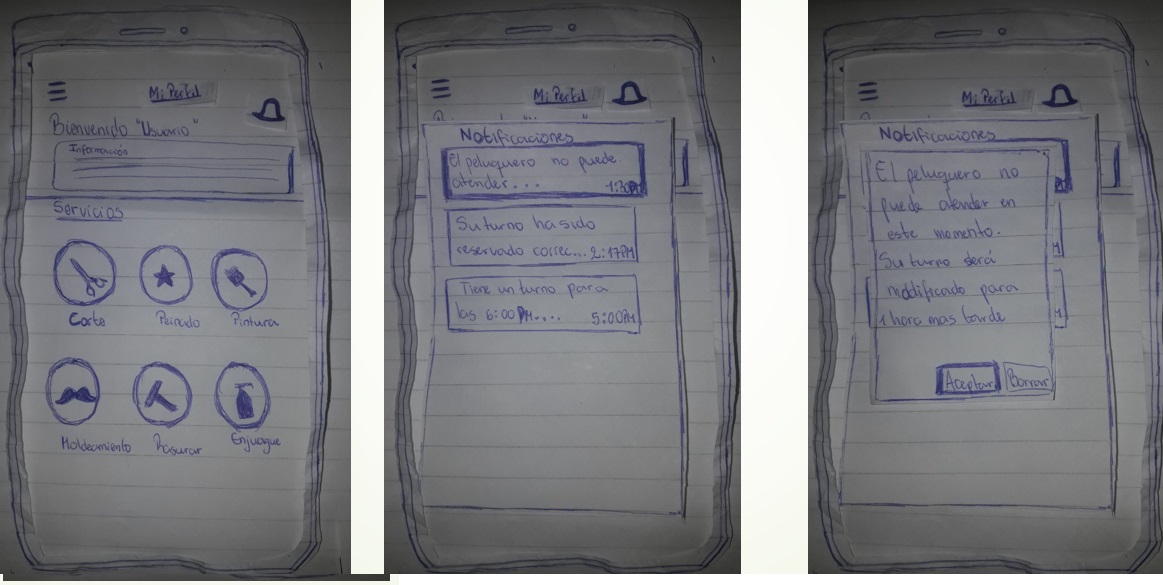 Mi Perfil
Bienvenido "Usuario"
Información
Servicios
Corte
Peinado
Pintura
Moldeamiento
Rasurar
Enjuague
Mi Perfil
Notificaciones
El peluquero no puede
atender... 1:30PM
Su turno ha sido
reservado correc... 2:17PM
Tiene un turno para
las 6:00 PM.... 5:00PM
Mi Perfil
Notificaciones
El peluquero no
puede atender en
este momento.
Su turno será
modificado para
1 hora mas tarde
Aceptar
Borrar